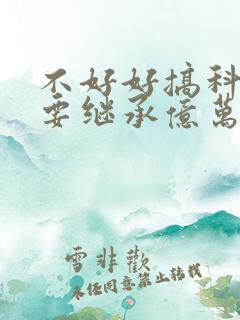 不好好搞科
要继承億萬
雪非歡
未经同意禁止转载